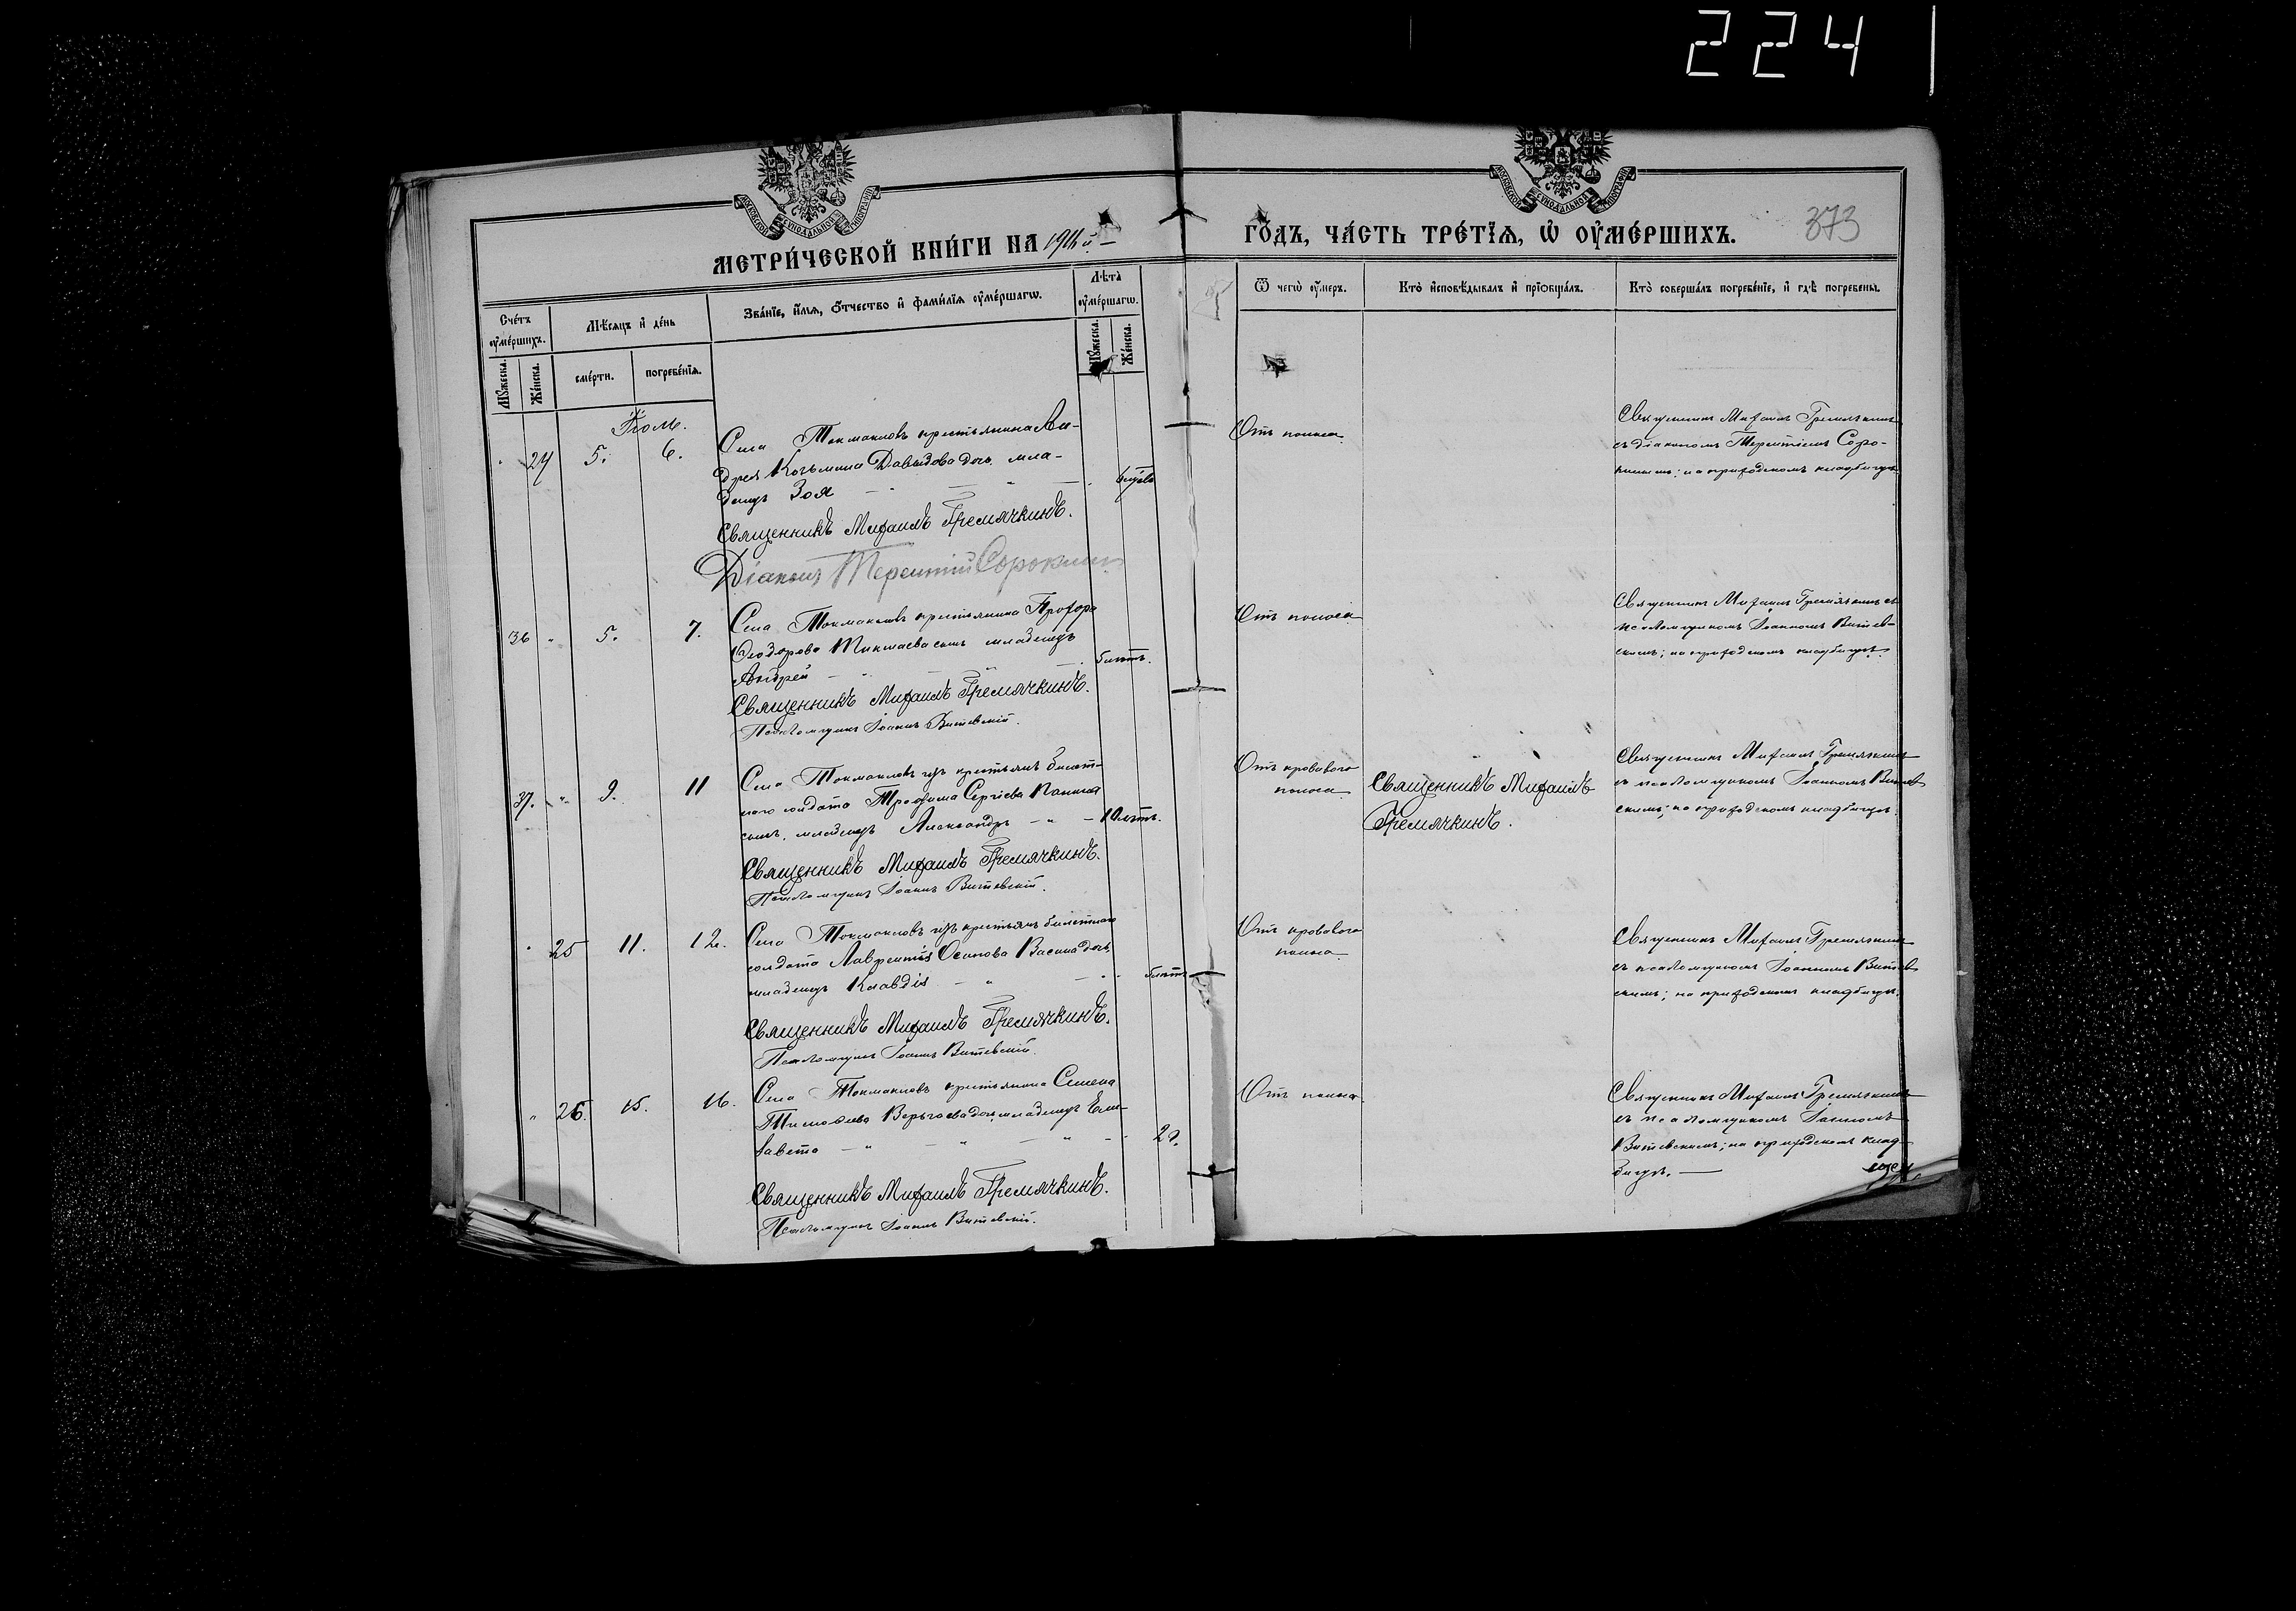 224
МОСКОВСКОЙ СѴНОДАЛЬНОЙ ТИПОГРАФІИ
МОСКОВСКОЙ СѴНОДАЛЬНОЙ ТИПОГРАФІИ
МЕТРИ́ЧЕСКОЙ КНИ́ГИ НА 191 й
ГО́ДЪ, ЧА́СТЬ ТРЕ́ТЇѦ, Ѡ ОУМЕ́РШИХЪ.
373
Сче́тъ оуме́ршихъ.
Мѣ́сѧцъ и де́нь
Зва́нїе, и́мѧ, о́тчество и фами́лїѧ оуме́ршагѡ.
Лѣта̀ оуме́ршагѡ.
Ѿ чегѡ̀ оу́меръ.
Кто̀ и҆сповѣ́дывалъ и҆ прїѡбща́лъ.
Кто̀ соверша́лъ погребе́нїе, и҆ гдѣ̀ погребены̀.
Мꙋ́жеска.
Же́нска.
сме́рти.
погребе́нїѧ.
Мꙋ́жеска.
Же́нска.
Іюль.
24 5. 6.
Села Токмаклов крестьянина Ан-
дрея Козьмина Давыдова дочь, мла-
денцъ Зоя
Священникъ Михаилъ Гремячкинъ.
Діаконъ Терентій Сорокинъ
Отъ поноса
Священникъ Михаилъ Гремячкинъ
съ діакономъ Терентіемъ Соро-
кинымъ; на приходскомъ кладбищѣ
36 " 5. 7.
Села Токмаклов крестьянина Прохора
Ѳеодорова сынъ младенецъ
Андрей
5 лѣтъ.
Священникъ Михаилъ Гремячкинъ.
Псаломщикъ Іоаннъ Витевскій.
Отъ поноса
Священникъ Михаилъ Гремячкинъ съ
псаломщикомъ Іоанномъ Витев-
скимъ; на приходскомъ кладбищѣ.
37. " 9. 11
Села Токмаклов изъ крестьянъ билет-
наго солдата Трофима Сергіева
сынъ, младенецъ Александръ 10 лѣтъ.
Священникъ Михаилъ Гремячкинъ.
Псаломщикъ Іоаннъ Витевскій.
Отъ кроваваго
поноса
Священникъ Михаилъ
Гремячкинъ.
Священникъ Михаилъ Гремячкинъ
съ псаломщикомъ Іоанномъ Витев
скимъ; на приходскомъ кладбищѣ.
" 25 11. 12.
Села Токмаклов изъ крестьянъ билетнаго
солдата Лаврентія Осипова Васина дочь,
младенецъ Клавдія
5 лѣтъ
Священникъ Михаилъ Гремячкинъ.
Псаломщикъ Іоаннъ Витевскій.
Отъ кроваваго
поноса
Священникъ Михаилъ Гремячкинъ
съ псаломщикомъ Іоанномъ Витев
скимъ; на приходскомъ кладбищѣ.
" 26. 15. 16.
Села Токмаклов крестьянина Семена
дочь, младенецъ Ели-
завета 2 г.
Священникъ Михаилъ Гремячкинъ.
Псаломщикъ Іоаннъ Витевскій.
Отъ поноса
Священникъ Михаилъ Гремячкинъ
съ псаломщикомъ Іоанномъ
Витевскимъ; на приходскомъ клад-
бищѣ.